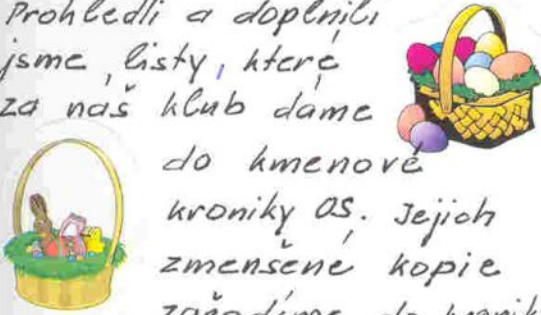 Prohledli a doplnili
jsme listy, které
za náš klub dáme
do kmenové
kroniky OS. Jejich
zmenšené kopie
zařadíme do kronik